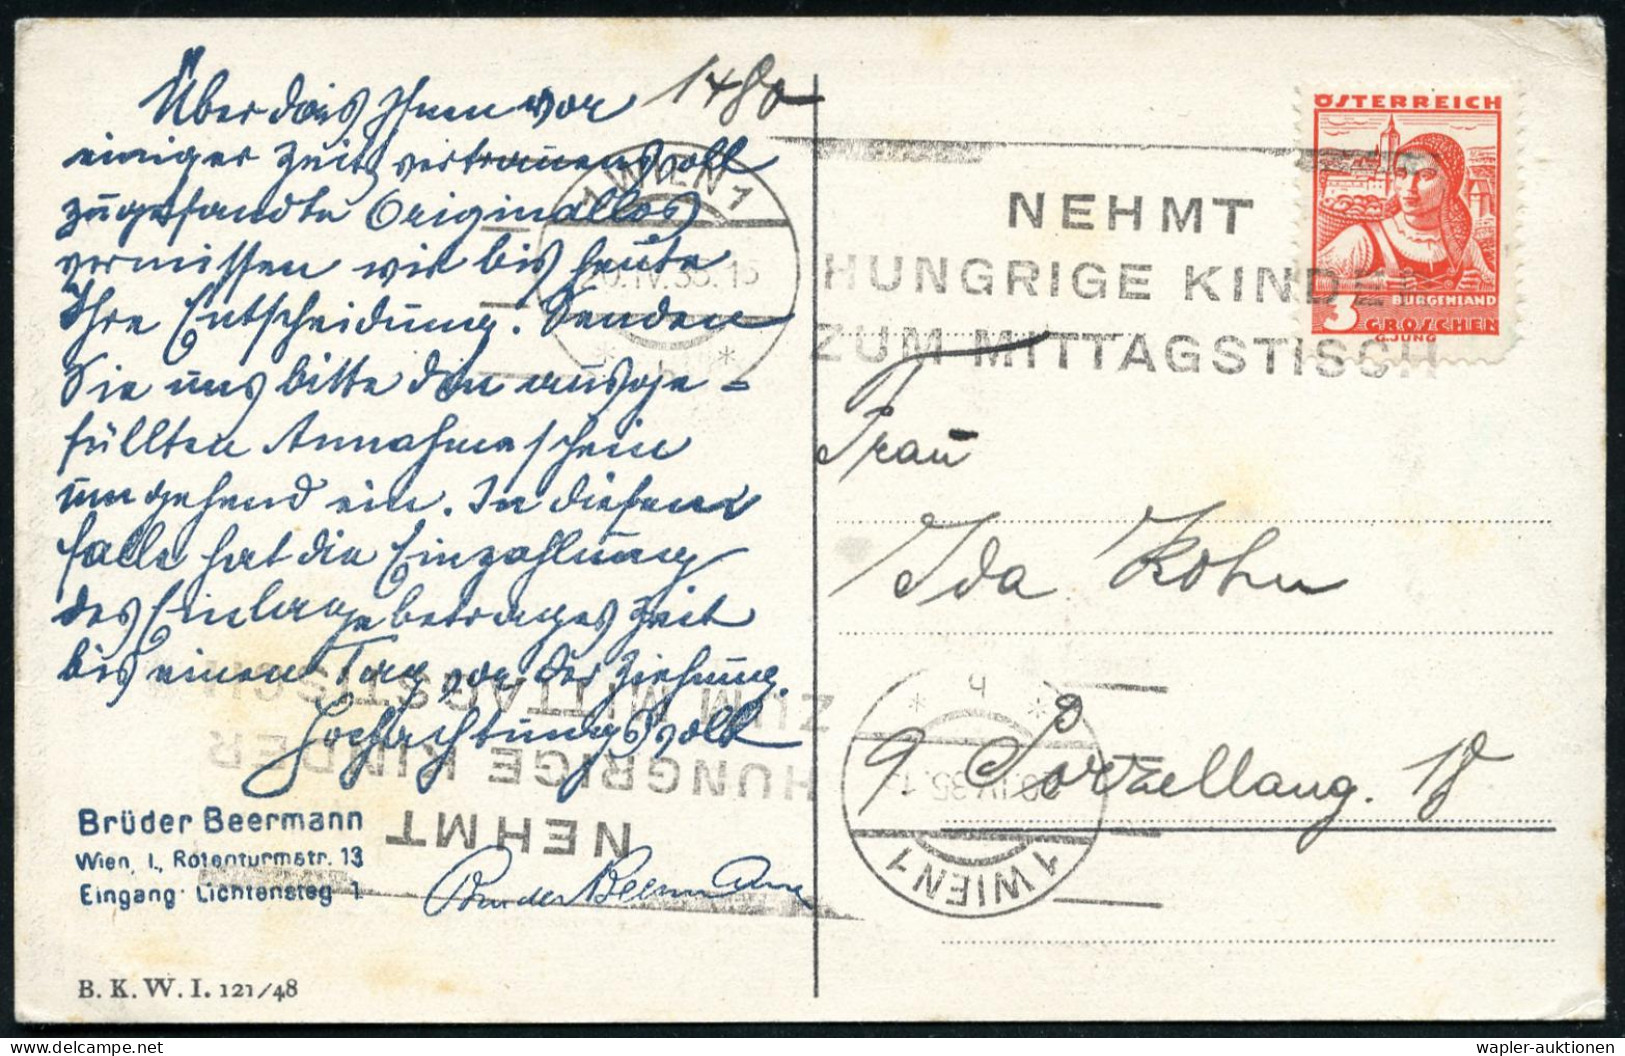 Über das Ihnen vor
einiger Zeit vertrauensvoll
zugesandte Originallos
vermissen wir bis heute
Ihre Entscheidung. Senden
Sie uns bitte den ausge-
füllten Annahmeschein
umgehend ein. In diesem
Falle hat die Einzahlung
des Einlagebetrages Zeit
bis einen Tag vor der Ziehung.
Hochachtungsvoll
Brüder Beermann
Wien, I., Rotenturmstr. 13
Eingang Lichtensteg 1
Brüder Beermann
B. K. W. I. 121/48
1480
1 WIEN 1
20.IV.35.15
NEHMT
HUNGRIGE KINDER
ZUM MITTAGSTISCH
ÖSTERREICH
BURGENLAND
3 GROSCHEN
G.JUNG
Frau
Ida Kohn
9 Porzellang. 18
1 WIEN 1
20.IV.35.
NEHMT
HUNGRIGE KINDER
ZUM MITTAGSTISCH
wapler-auktionen
delcampe.net